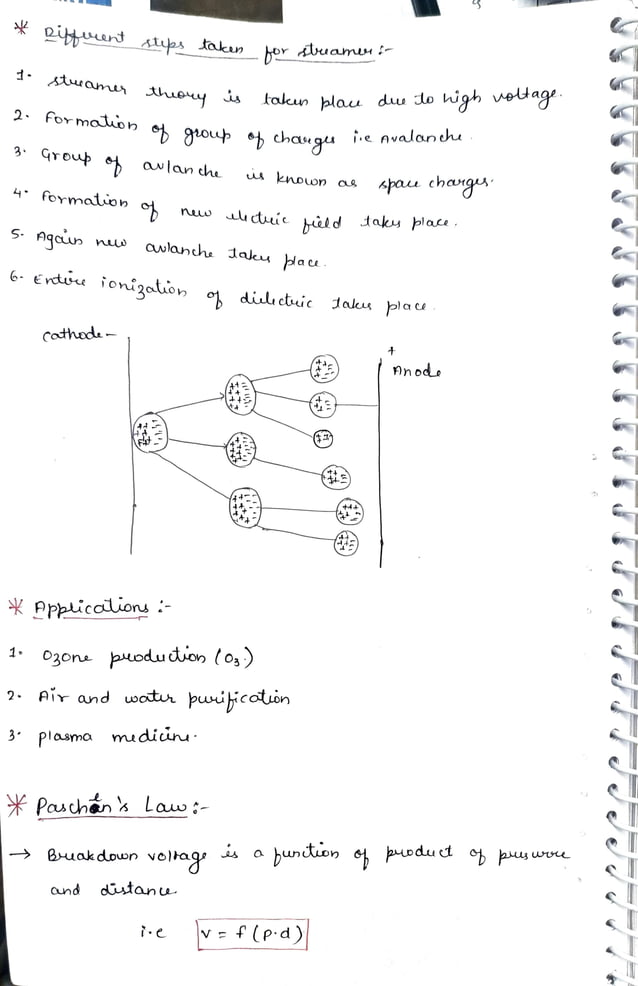 * Different steps taken for streamer :-
1. streamer theory is taken place due to high voltage.
2. Formation of group of charges i.e Avalanche.
3. Group of avlanche is known as space charges.
4. Formation of new electric field takes place.
5. Again new avlanche takes place.
6. Entire ionization of dielectric takes place.
cathode -
+
Anode
* Applications :-
1. Ozone production (O3.)
2. Air and water purification
3. plasma medicine.
* Paschen's Law :-
→ Breakdown voltage is a function of product of pressure
and distance
i.e V = f (p.d)